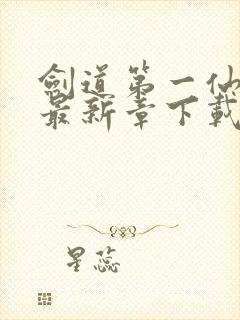 劍道第一仙
最新章下載
星蕊